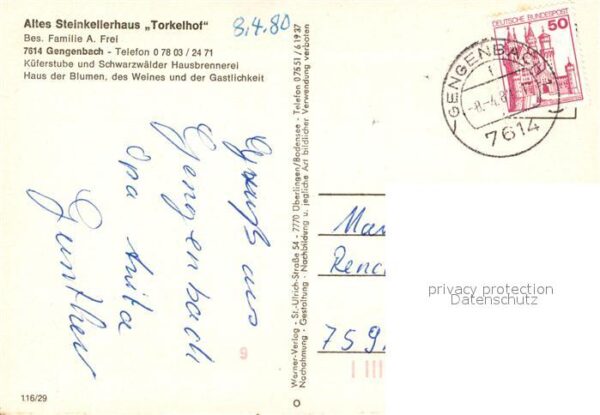 Altes Steinkellerhaus „Torkelhof"
Bes. Familie A. Frei
7614 Gengenbach - Telefon 0 78 03 / 24 71
Küferstube und Schwarzwälder Hausbrennerei
Haus der Blumen, des Weines und der Gastlichkeit
8.4.80
Gruß aus
Gengenbach
Opa Anita
Gunther
116/29
Werner-Verlag - St.-Ulrich-Straße 54 - 7770 Überlingen/Bodensee - Telefon 0 75 51 / 6 19 37
Nachahmung - Gestaltung - Nachbildung u. jegliche Art bildlicher Verwendung verboten
DEUTSCHE BUNDESPOST
50
GENGENBACH 1
-8.-4.8
7614
Mar
Renc
759
privacy protection
Datenschutz
9